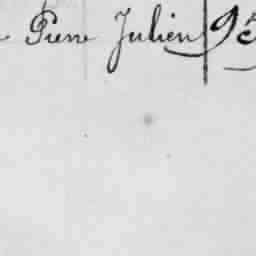 Pierre Julien 95